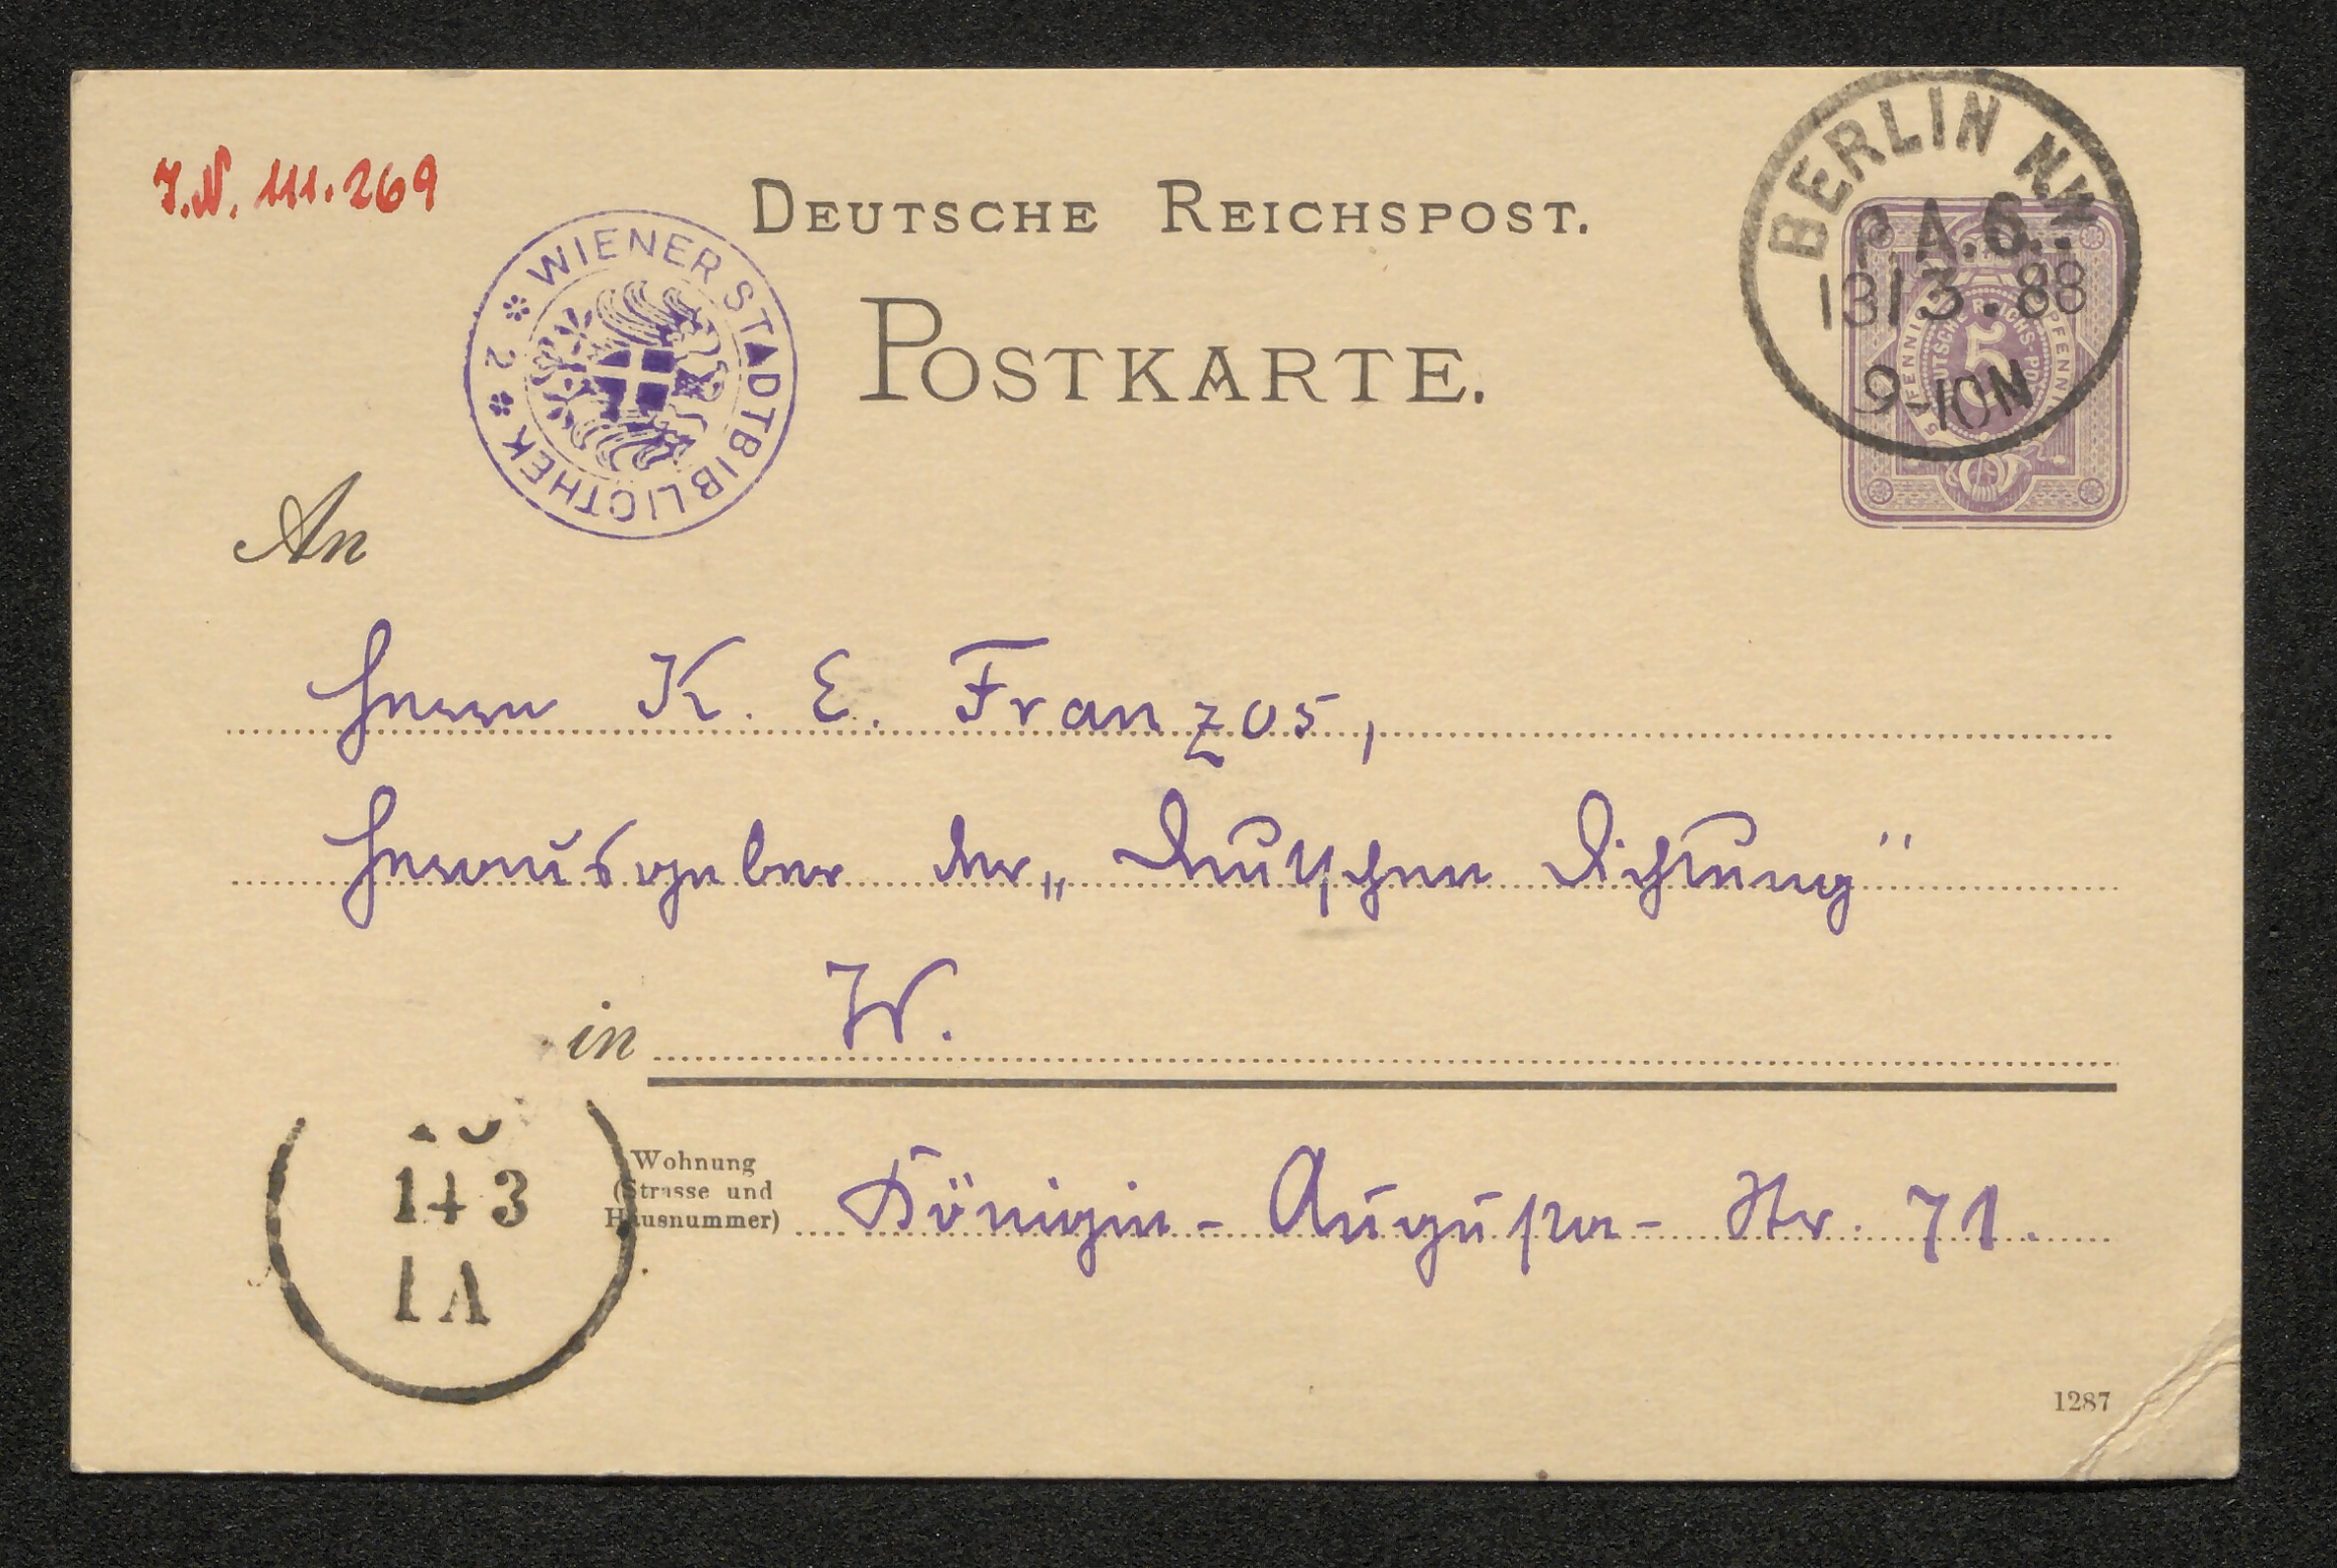 J.N. 111.269
DEUTSCHE REICHSPOST.
POSTKARTE.
WIENER STADTBIBLIOTHEK * 2 *
BERLIN N.W.
P.A.6.
13/3.88
9-10N
5 PFENNIG
DEUTSCHE REICHS-POST
5
An
Herrn K. E. Franzos,
Herausgeber der „Deutschen Dichtung"
in W.
Wohnung
(Strasse und
Hausnummer)
Königin-Augusta-Str. 71.
14 3
1287